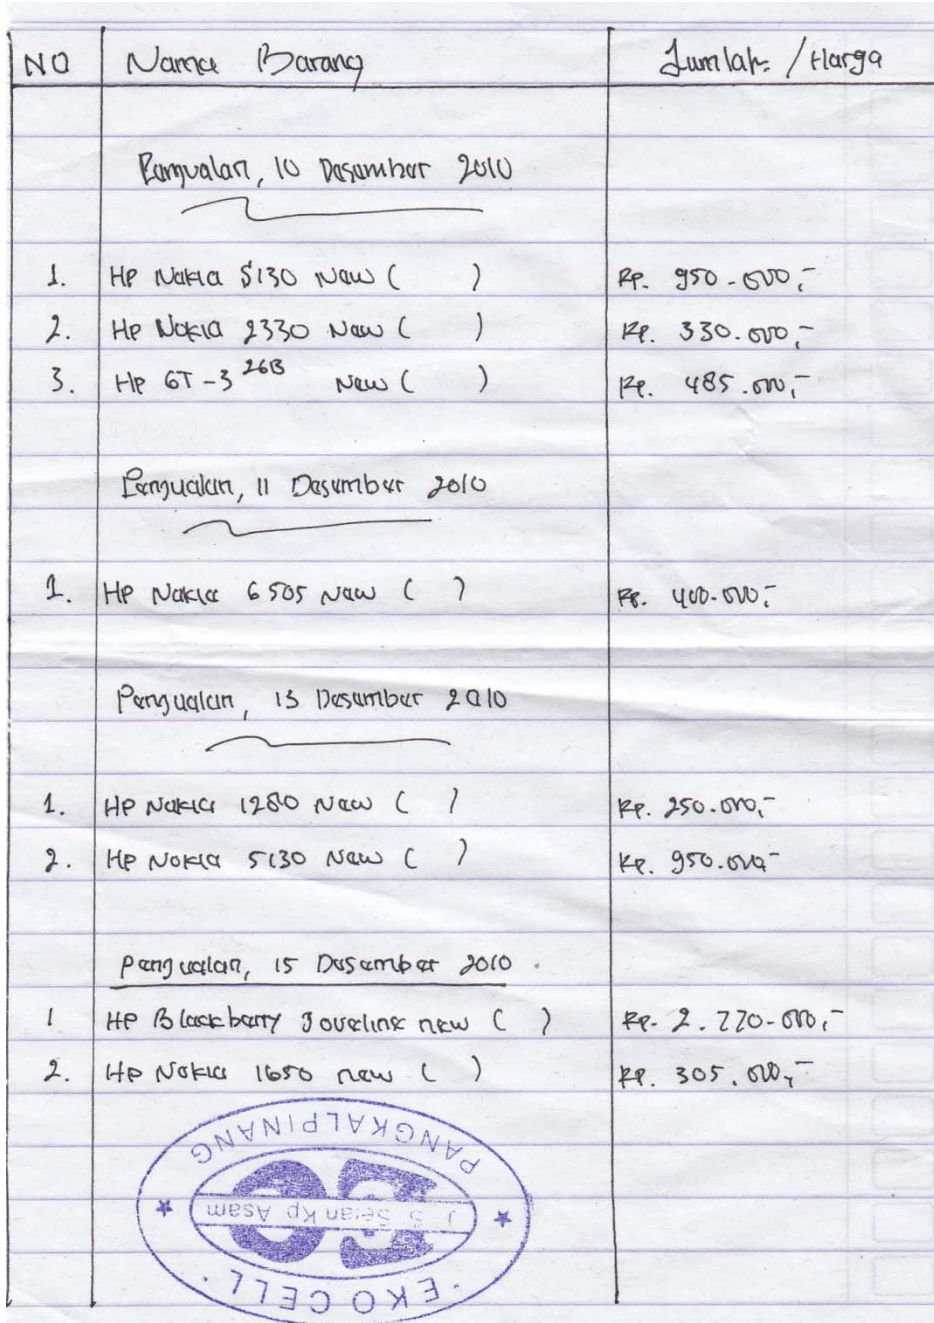 NO Nama Barang Jumlah / Harga
Penjualan, 10 Desember 2010
1. HP Nokia 5130 New ( ) Rp. 950.000,-
2. Hp Nokia 2330 New ( ) Rp. 330.000,-
3. Hp GT-3 2GB New ( ) Rp. 485.000,-
Penjualan, 11 Desember 2010
1. HP Nokia 6505 New ( ) Rp. 400.000,-
Penjualan, 13 Desember 2010
1. HP Nokia 1280 New ( ) Rp. 250.000,-
2. Hp Nokia 5130 New ( ) Rp. 950.000,-
Penjualan, 15 Desember 2010.
1 HP Blackberry new ( ) Rp. 2.770.000,-
2. Hp Nokia 1650 new ( ) Rp. 305.000,-
PANGKALPINANG
EC
Jl. S. Selan Kp Asam
EKO CELL